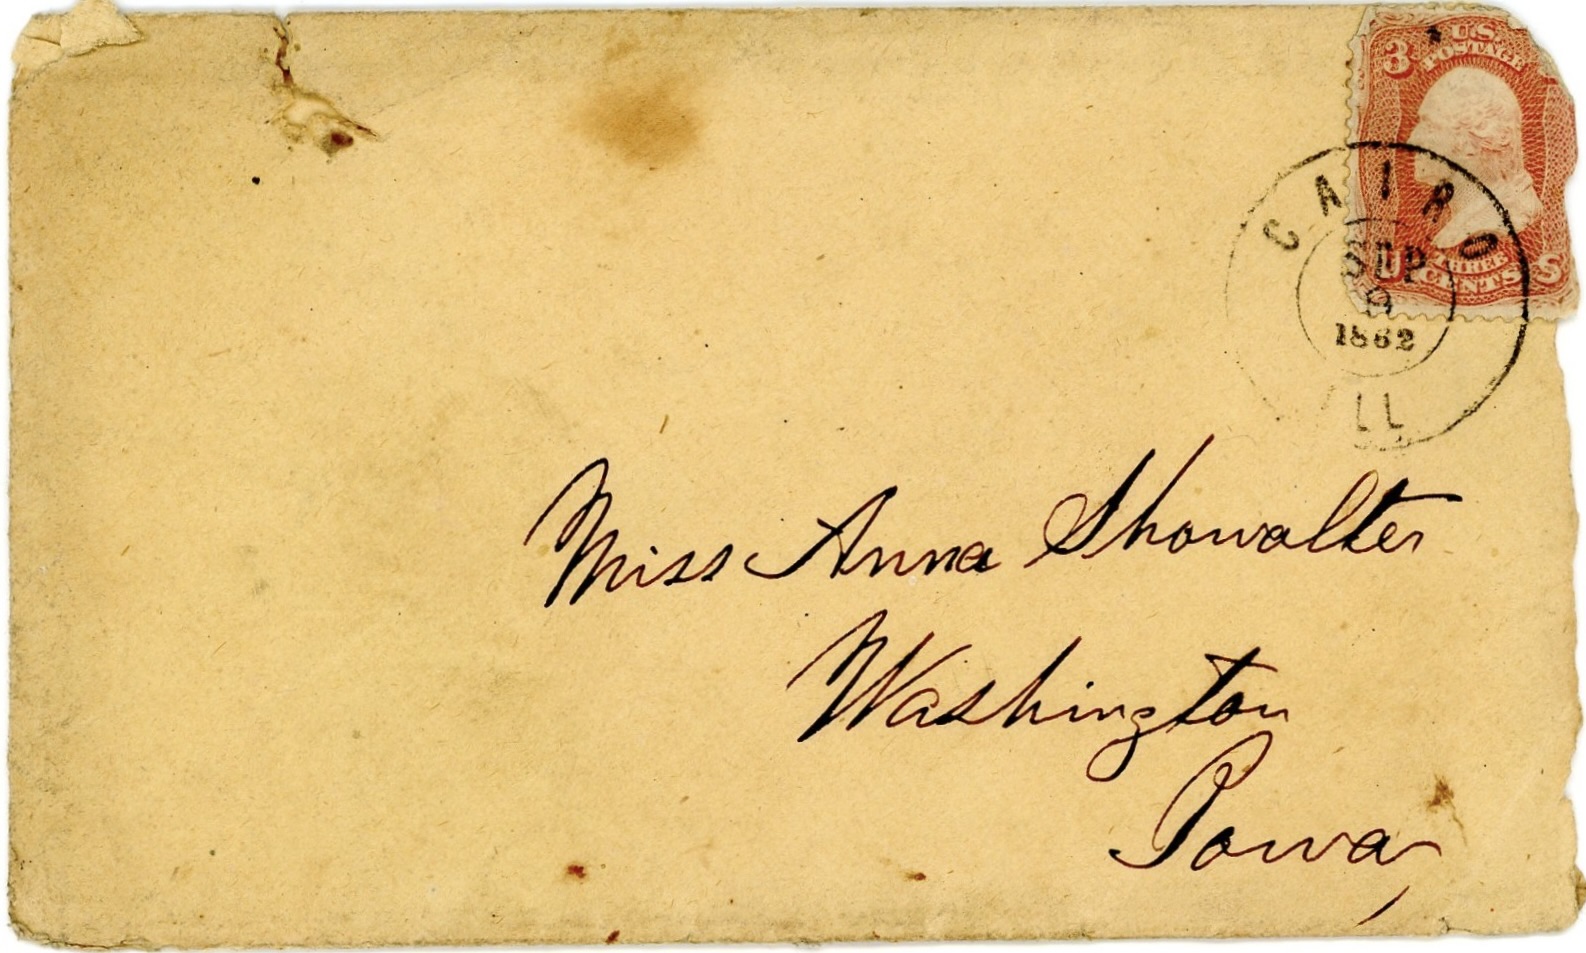 3 U.S.
POSTAGE
THREE
U CENTS S
CAIRO
SEP
9
1862
ILL
Miss Anna Showalter
Washington
Iowa